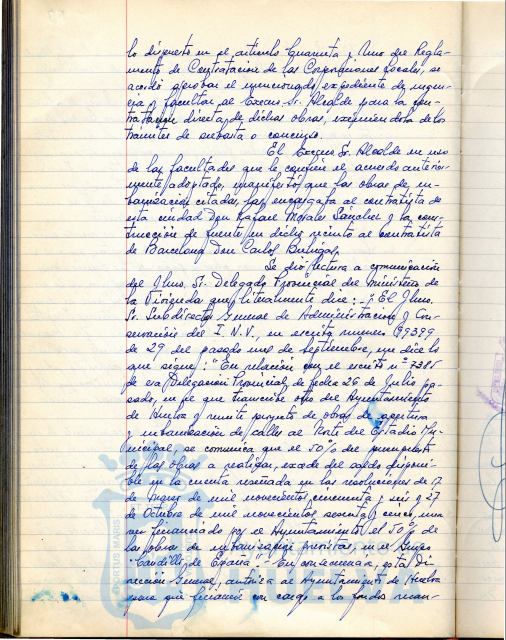 lo dispuesto en el artículo Cuarenta y Uno del Regla-
mento de Contratación de las Corporaciones locales, se
acordó aprobar el mencionado expediente de urgen-
cia y facultar al Excmo. Sr. Alcalde para la con-
tratación directa de dichas obras, exceptuándola de los
trámites de subasta o concurso.
El Excmo. Sr. Alcalde en uso
de las facultades que le confiere el acuerdo anterior-
mente adoptado, manifestó que las obras de ur-
banización citadas, las encargaba al contratista de
esta ciudad Don Rafael Morales Sánchez y la cons-
trucción de fuente en dicho recinto al contratista
de Barcelona Don Carlos Buhigas.
Se dio lectura a comunicación
del Ilmo. Sr. Delegado Provincial del Ministerio de
la Vivienda que literalmente dice: "El Ilmo.
Sr. Subdirector General de Administración y Con-
servación del I.N.V., en escrito número 99399
de 29 del pasado mes de Septiembre, me dice lo
que sigue: "En relación con el escrito nº 7385
de esa Delegación Provincial de fecha 26 de Julio pa-
sado, en el que transcribe otro del Ayuntamiento
de Huelva y remite proyecto de obras de apertura
y urbanización de calles al Norte del Estadio Mu-
nicipal, se comunica que el 50% del presupuesto
de las obras a realizar, excede del saldo disponi-
ble en la cuenta reseñada en las resoluciones de 17
de Marzo de mil novecientos cincuenta y seis y 27
de Octubre de mil novecientos sesenta y cinco, una
vez financiado por el Ayuntamiento el 50% de
las obras de urbanización previstas en el Grupo
"Caudillo de España".- En consecuencia, esta Di-
rección General, autoriza al Ayuntamiento de Huelva
para que financie con cargo a los fondos rema-
DOCTUS MARIS